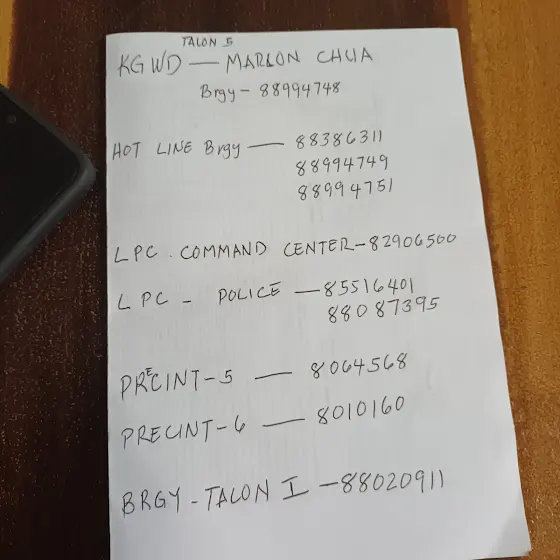 TALON 5
KGWD — MARLON CHUA
Brgy - 88994748
HOT LINE Brgy — 88386311
88994749
88994751
LPC. COMMAND CENTER - 82906500
LPC - POLICE — 85516401
88087395
PRECINT-5 — 8064568
PRECINT-6 — 8010160
BRGY - TALON I - 88020911